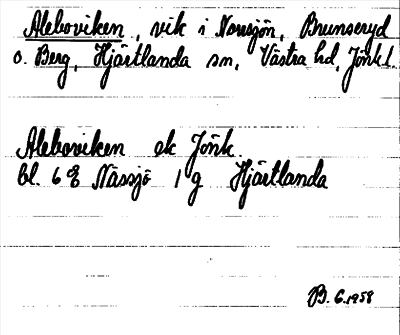 Aleboviken, vik i Norrsjön, Brunseryd
o. Berg, Hjärtlanda sn, Västra hd, Jönk l.
Aleboviken ek Jönk.
bl. 6 E Nässjö 1 g Hjärtlanda
B. G. 1958